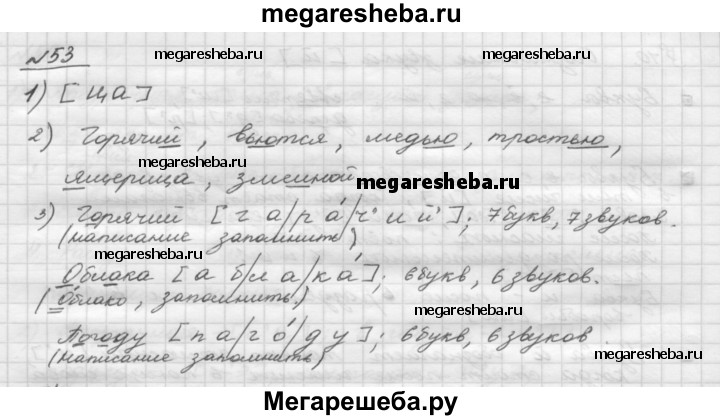 megaresheba.ru
№53
megaresheba.ru
megaresheba.ru
1) [ ща ]
2) Горячий, вьются, медью, тростью,
ящерица, змеиной
megaresheba.ru
3) Горячий [ г а / р а́ / ч' и й' ]; 7 букв, 7 звуков.
(написание запомнить)
megaresheba.ru
Облака [ а б / л а / к а́ ]; 6 букв, 6 звуков.
(Облако, запомнить.)
megaresheba.ru
Погоду [ п а / г о́ / д у ]; 6 букв, 6 звуков.
(написание запомнить)
megaresheba.ru
Мегарешеба.ру